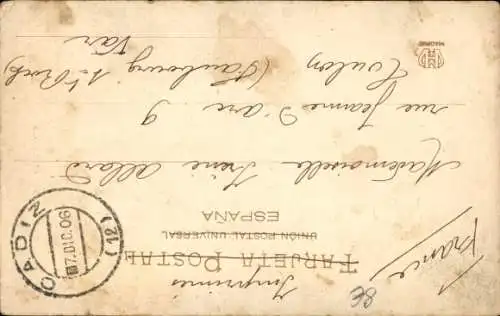 TARJETA POSTAL
UNIÓN POSTAL UNIVERSAL
ESPAÑA
Imprimés
France
Mademoiselle Irène Allard
9 rue Jeanne d'Arc
(Faubourg St Roch)
Toulon
Var
CADIZ
7.DIC.06
(12)